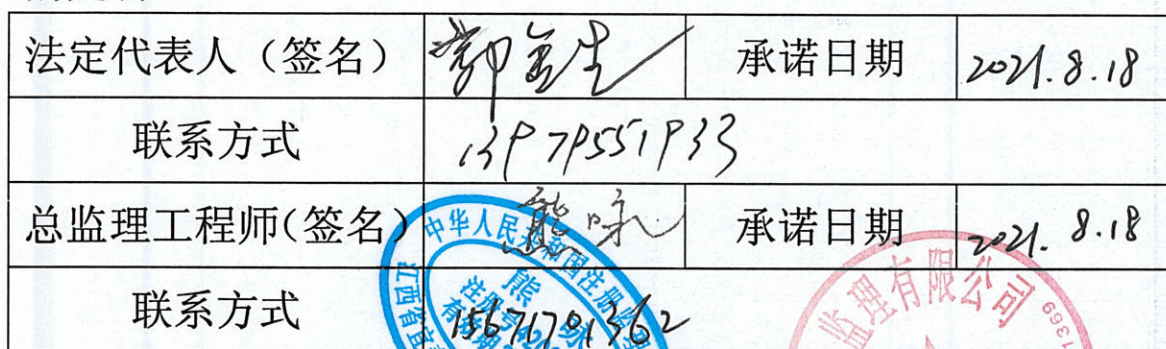 法定代表人（签名） 郭金生 承诺日期 2021.8.18
联系方式 13979551933
总监理工程师(签名) 熊咏 承诺日期 2021.8.18
联系方式 15671701362
中华人民共和国注册监理
江西省
熊咏
注册号
有效期
监理有限公司
1369